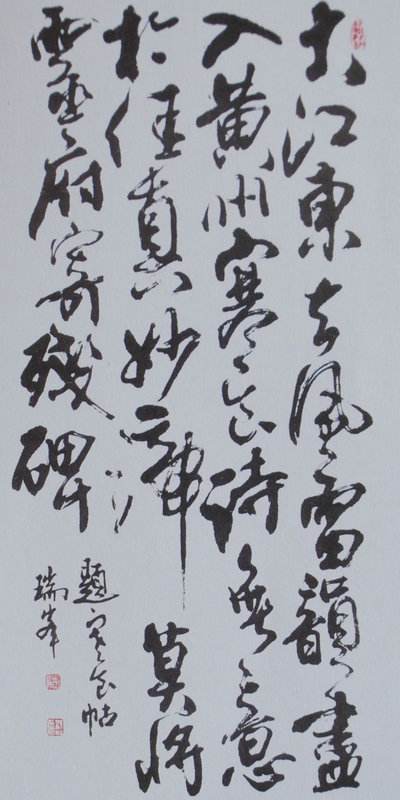 大江東去風雷韻盡
入黄州寒食诗無意
於佳真妙諦莫將
靈府寄殘碑
題寒食帖
瑞峰